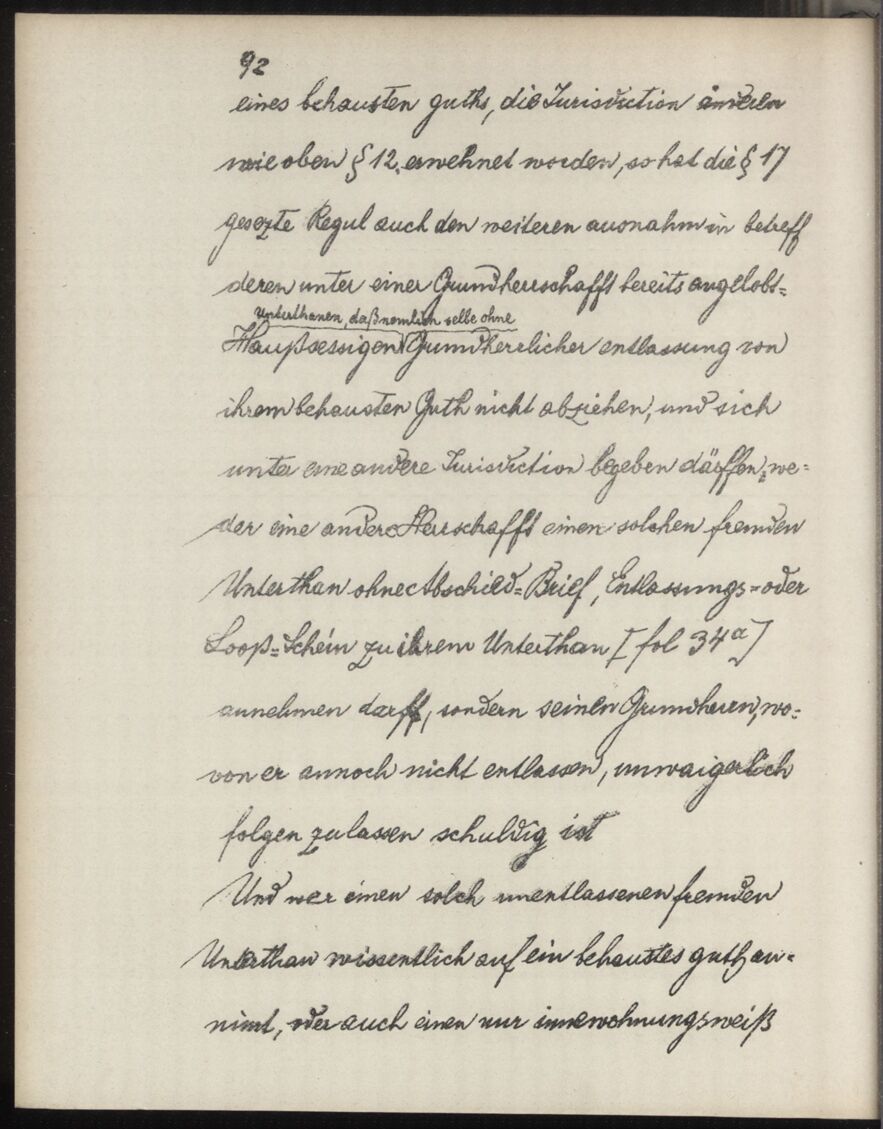 92
eines behausten guths, die Jurisdiction änderen
wie oben § 12. erwehnet worden, so hat die § 17
gesezte Regul auch den weiteren ausnahm in betreff
deren unter einer Grundherrschafft bereits angelobt=
unterthanen, daß nemlich selbe ohne
Haußsessigen Grundherrlicher entlassung von
ihrem behausten Guth nicht abziehen, und sich
unter eine andere Jurisdiction begeben därffen, we=
der eine andere Herrschafft einen solchen fremden
Unterthan ohne Abschied=Brief, Entlassungs=oder
Looß=Schein zu ihrem Unterthan [fol 34a]
annehmen darff, sondern seinen Grundherren, wo=
von er annoch nicht entlassen, unwaigerlich
folgen zu lassen schuldig ist
Und wer einen solch unentlassenen fremden
Unterthan wissentlich auf ein behaustes guth an=
nimt, oder auch einen nur innewohnungsweiß